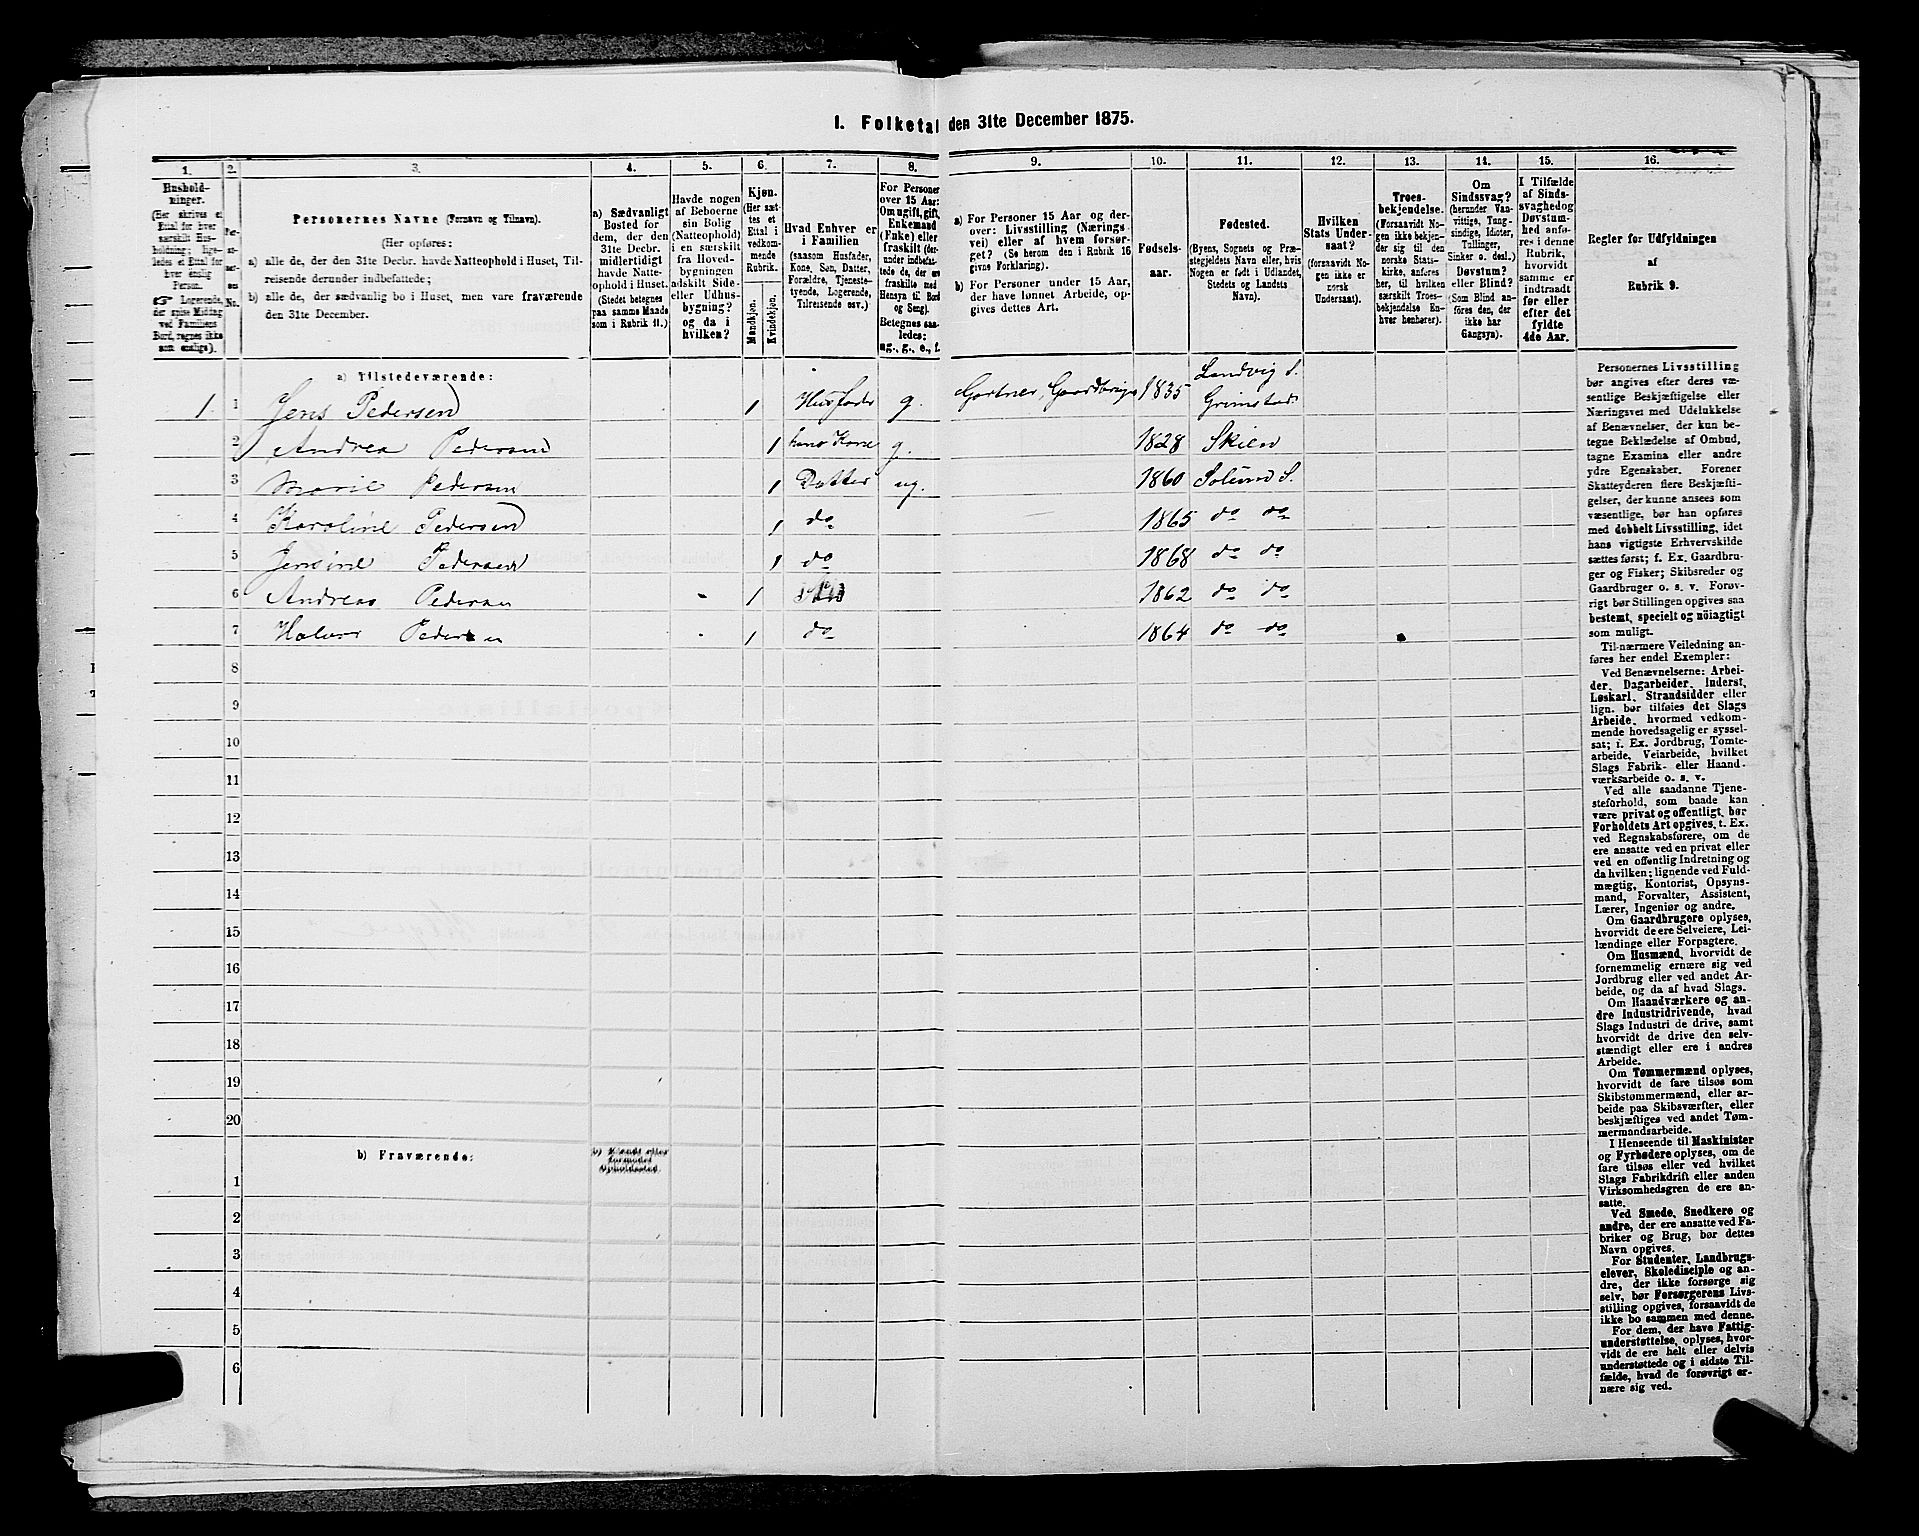 I. Folketal den 31te December 1875.
1. 2. 3. 4. 5. 6. 7. 8. 9. 10. 11. 12. 13. 14. 15. 16.
Hushold-
ninger.
(Her skrives et
Ettal for hver
særskilt Hus-
holdning; lige-
ledes et Ettal for
hver enslig
Person.
☞ Logerende,
der spise Middag
ved Familiens
Bord, regnes ikke
som enslige).
Per-
so-
ner-
nes
No.
Personernes Navne (Fornavn og Tilnavn).
(Her opføres:
a) alle de, der den 31te Decbr. havde Natteophold i Huset, Til-
reisende derunder indbefattede;
b) alle de, der sædvanlig bo i Huset, men vare fraværende
den 31te December.
a) Sædvanligt
Bosted for
dem, der den
31te Decbr.
midlertidigt
havde Natte-
ophold i Huset.
(Stedet betegnes
paa samme Maade
som i Rubrik 11.)
Havde nogen
af Beboerne
sin Bolig
(Natteophold)
i en særskilt
fra Hoved-
bygningen
adskilt Side-
eller Udhus-
bygning?
og da i
hvilken?
Kjøn.
(Her sæt-
tes et
Ettal i
vedkom-
mende
Rubrik.
Mandkjøn.
Kvindekjøn.
Hvad Enhver er
i Familien
(saasom Husfader,
Kone, Søn, Datter,
Forældre, Tjeneste-
tyende, Logerende,
Tilreisende osv.)
For Personer
over 15 Aar:
Om ugift, gift,
Enkemand
(Enke) eller
fraskilt (der-
under indbefat-
tede de, der ere
fraskilte med
Hensyn til Bord
og Seng).
Betegnes saa-
ledes:
ug., g., e., f.
a) For Personer 15 Aar og der-
over: Livsstilling (Nærings-
vei) eller af hvem forsør-
get? (Se herom den i Rubrik 16
givne Forklaring).
b) For Personer under 15 Aar,
der have lønnet Arbeide, op-
gives dettes Art.
Fødsels-
aar.
Fødested.
(Byens, Sognets og Præ-
stegjeldets Navn eller, hvis
Nogen er født i Udlandet,
Stedets og Landets
Navn).
Hvilken
Stats Under-
saat?
(forsaavidt No-
gen ikke er
norsk
Undersaat).
Troes-
bekjendelse.
(Forsaavidt No-
gen ikke bekjen-
der sig til den
norske Stats-
kirke, anføres
her, til hvilken
særskilt Troes-
bekjendelse En-
hver henhører).
Om
Sindssvag?
(herunder Van-
vittige, Tung-
sindige, Idioter,
Tullinger,
Sinker o. desl.)
Døvstum?
eller Blind?
(Som Blind an-
føres den, der
ikke har
Gangsyn).
I Tilfælde
af Sinds-
svaghed og
Døvstum-
hed anfø-
res i denne
Rubrik,
hvorvidt
samme er
indtraadt
før eller
efter det
fyldte
4de Aar.
Regler for Udfyldningen
af
Rubrik 9.
a) Tilstedeværende:
1 1 Jens Pedersen 1 Husfader g. Gartner, Gaardbruger 1835 Landvig S. Grimstad
2 Andrea Pedersen 1 hans Kone g. 1828 Skien
3 Marie Pedersen 1 Datter ug. 1860 Solum S.
4 Karoline Pedersen 1 do 1865 do do
5 Jensine Pedersen 1 do 1868 do do
6 Andreas Pedersen - 1 1862 do do
7 Halvor Pedersen - 1 do 1864 do do
8
9
10
11
12
13
14
15
16
17
18
19
20
b) Fraværende:
b) Kjendt eller
formodet
Opholdssted.
1
2
3
4
5
6
Personernes Livsstilling
bør angives efter deres væ-
sentlige Beskjæftigelse eller
Næringsvei med Udelukkelse
af Benævnelser, der kun be-
tegne Beklædelse af Ombud,
tagne Examina eller andre
ydre Egenskaber. Forener
Skatteyderen flere Beskjæfti-
gelser, der kunne ansees som
væsentlige, bør han opføres
med dobbelt Livsstilling, idet
hans vigtigste Erhvervskilde
sættes først; f. Ex. Gaardbru-
ger og Fisker; Skibsreder og
Gaardbruger o. s. v. Forøv-
rigt bør Stillingen opgives saa
bestemt, specielt og nöiagtigt
som muligt.
Til nærmere Veiledning an-
føres her endel Exempler:
Ved Benævnelserne: Arbei-
der, Dagarbeider, Inderst,
Løskarl, Strandsidder eller
lign. bør tilføies det Slags
Arbeide, hvormed vedkom-
mende hovedsagelig er syssel-
sat; i. Ex. Jordbrug, Tomte-
arbeide, Veiarbeide, hvilket
Slags Fabrik- eller Haand-
værksarbeide o. s. v.
Ved alle saadanne Tjene-
steforhold, som baade kan
være privat og offentligt, bør
Forholdets Art opgives, t. Ex.
ved Regnskabsførere, om de
ere ansatte ved en privat eller
ved en offentlig Indretning og
da hvilken; lignende ved Fuld-
mægtig, Kontorist, Opsyns-
mand, Forvalter, Assistent,
Lærer, Ingeniør og andre.
Om Gaardbrugere oplyses,
hvorvidt de ere Selveiere, Lei-
lændinge eller Forpagtere.
Om Husmænd, hvorvidt de
fornemmelig ernære sig ved
Jordbrug eller ved andet Ar-
beide, og da af hvad Slags.
Om Haandværkere og an-
dre Industridrivende, hvad
Slags Industri de drive, samt
hvorvidt de drive den selv-
stændigt eller ere i andres
Arbeide.
Om Tømmermænd oplyses,
hvorvidt de fare tilsøs som
Skibstømmermænd, eller ar-
beide paa Skibsværfter, eller
beskjæftiges ved andet Tøm-
mermandsarbeide.
I Henseende til Maskinister
og Fyrbødere oplyses, om de
fare tilsøs eller ved hvilket
Slags Fabrikdrift eller anden
Virksomhedsgren de ere an-
satte.
Ved Smede, Snedkere og
andre, der ere ansatte ved Fa-
briker og Brug, bør dettes
Navn opgives.
For Studenter, Landbrugs-
elever, Skoledisciple og an-
dre, der ikke forsørge sig
selv, bør Forsørgerens Livs-
stilling opgives, forsaavidt de
ikke bo sammen med denne.
For dem, der have Fattig-
understøttelse, oplyses, hvor-
vidt de ere helt eller delvis
understøttede og i sidste Til-
fælde, hvad de forøvrigt er-
nære sig ved.